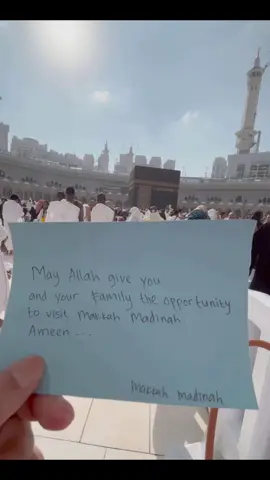 May Allah give you
and your family the opportunity
to visit Makkah Madinah
Ameen ....
Makkah Madinah